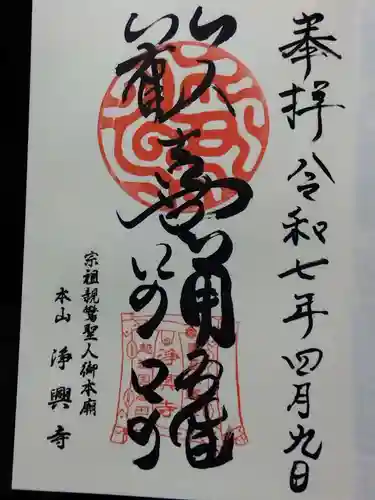 奉拝 令和七年四月九日
歓喜踊躍
宗祖親鸞聖人御本廟
本山 浄興寺